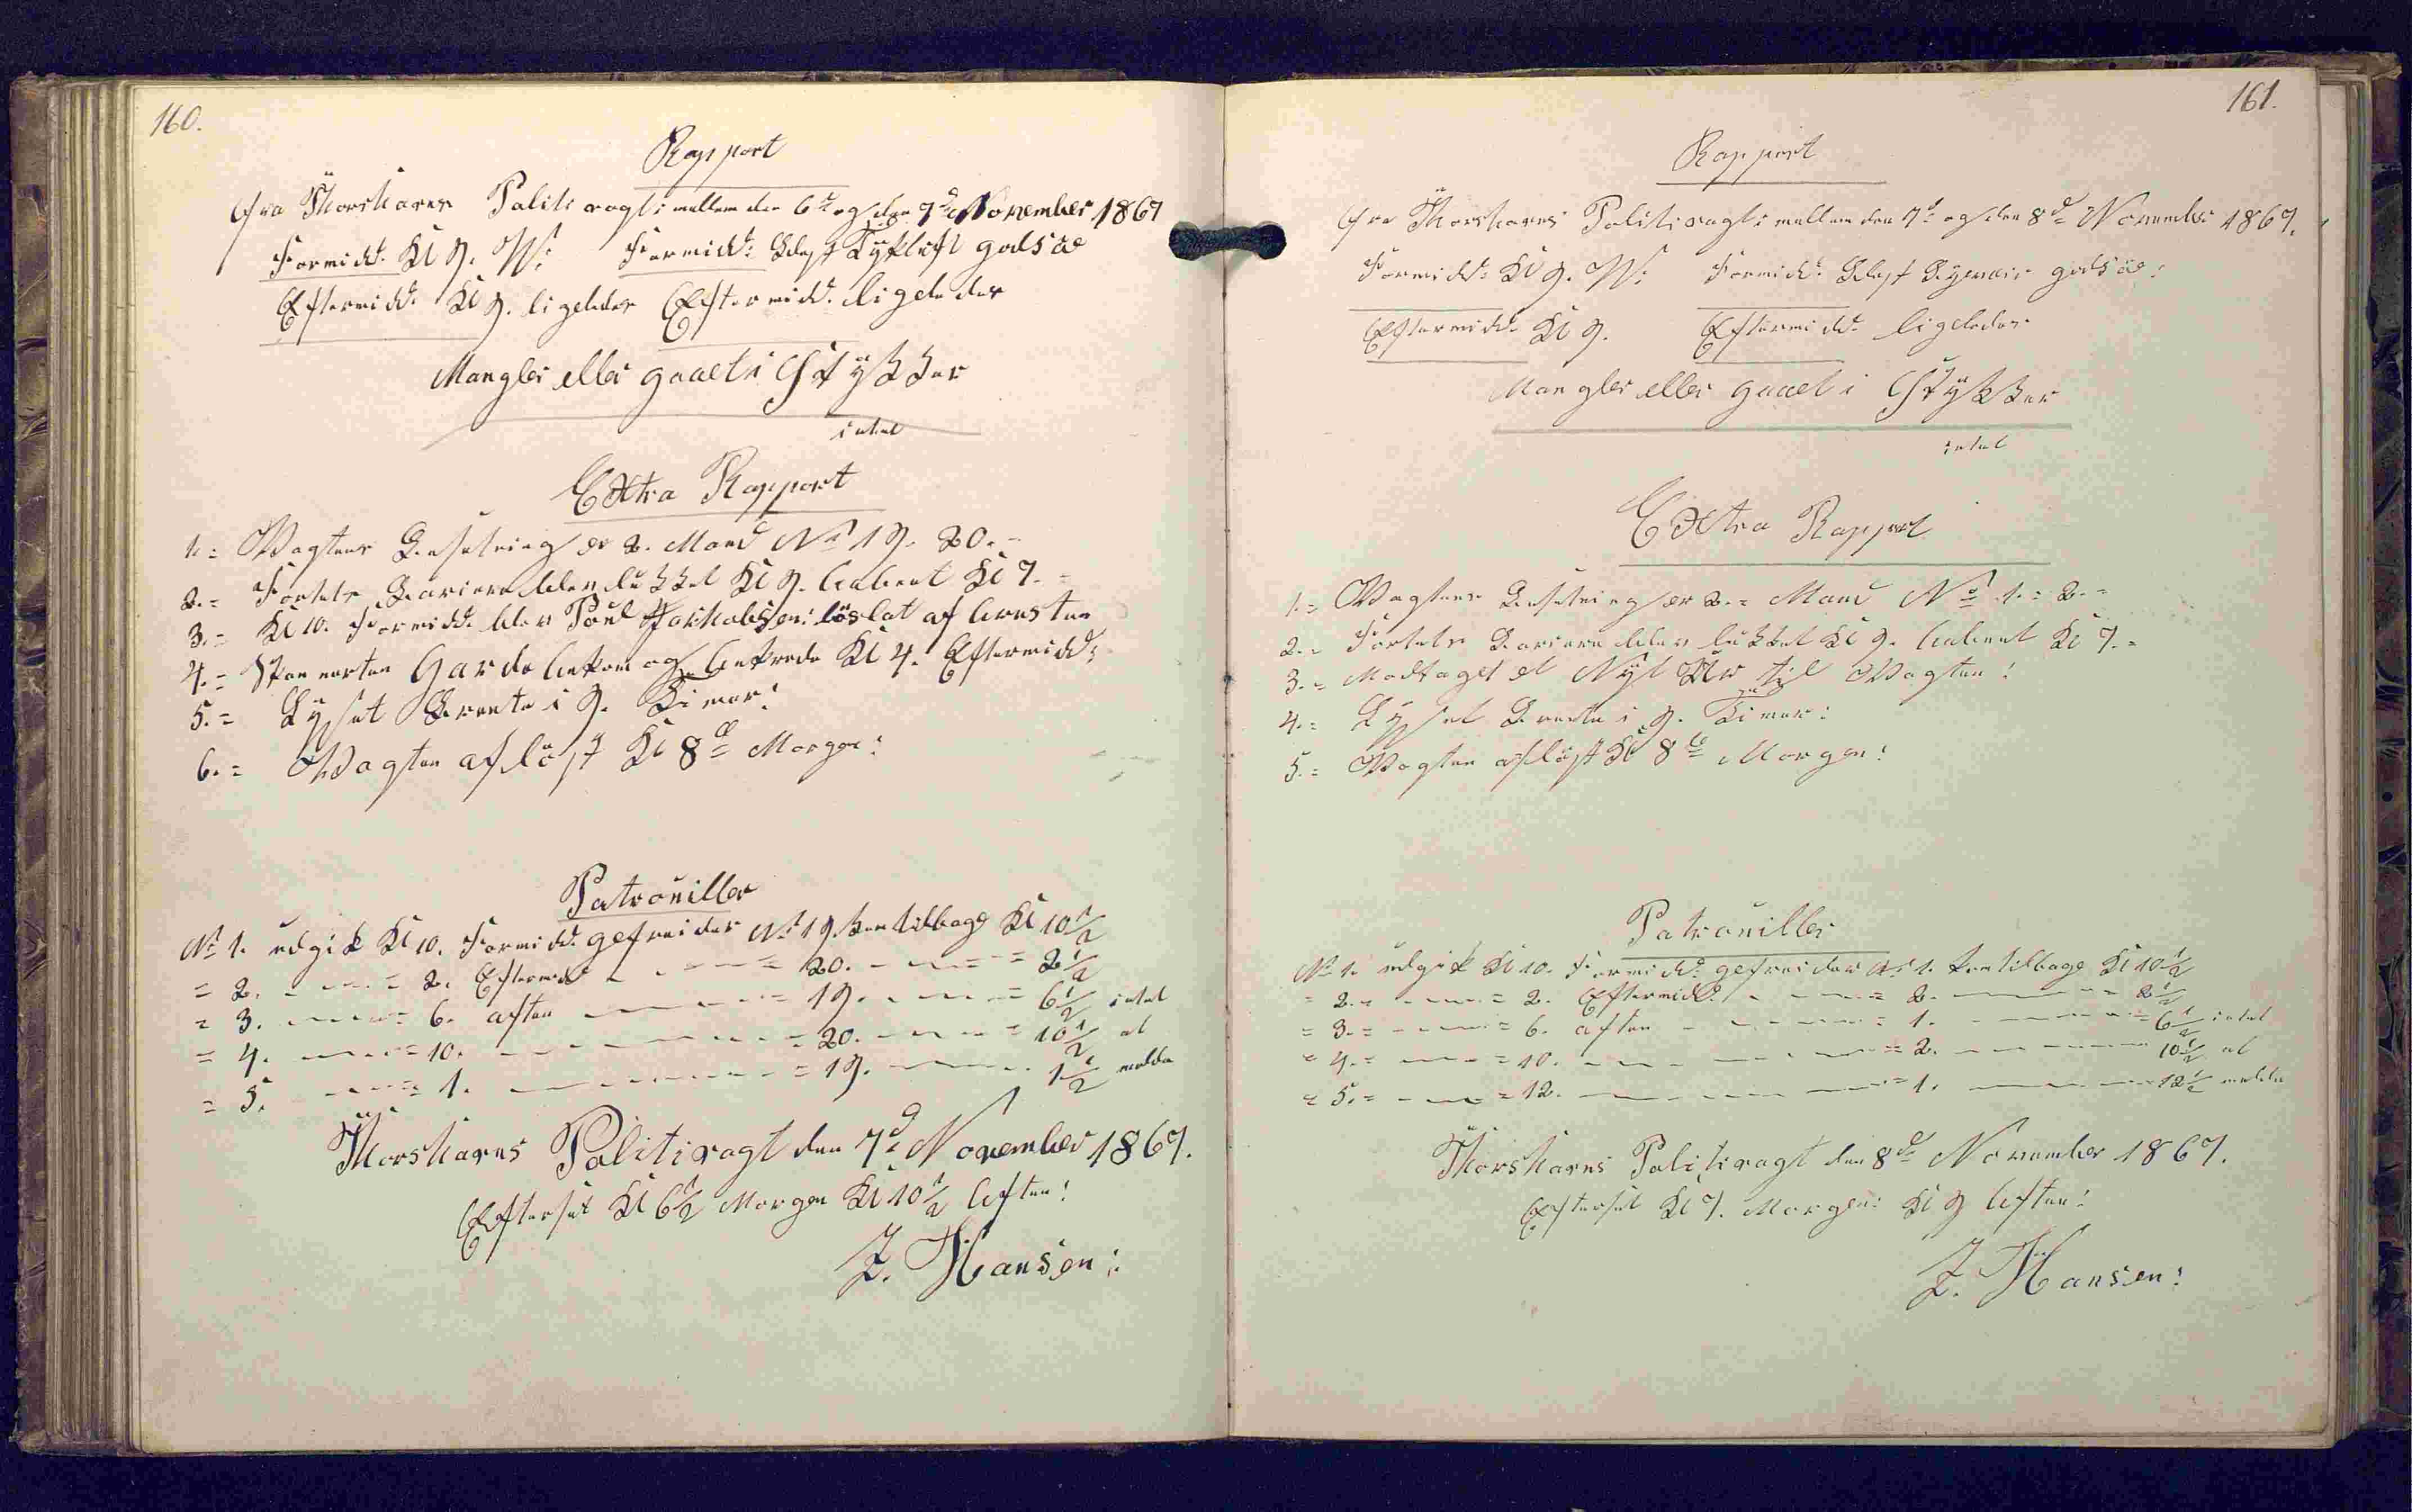 160.
Rapport
fra Thorshavns Politivagt imellem den 6te og den 7de November 1867
Formidd. Kl 9. W: Formidd: Blæst Tyklúft godsöe
Eftermidd. Kl 9. ligeledes Eftermidd. ligeledes
Mangler eller gaaet i Stÿkker
intet
Extra Rapport
1. = Vagtens Besetning er 2. Mand No 19. 20. =
2. = Fortets Bariere blev lúkket Kl 9. aabent Kl 7. =
3. = Kl 10. Formidd. blev Poul Jakkobsen löslat af Aresten
4. = Skonnerten Garde Ankom og Ankrede Kl 4. Eftermidd:
5. = Lÿset Brente i 9. Timer:
6. = Vagten aflöst Kl 8te Morgen:
Patroúiller
No 1. udgik Kl 10. Formidd. gefreider No 19. kom tilbage Kl 10 1/2
= 2. - - - = 2. Eftermidd - - - = 20. - - - = 2 1/2
= 3. - - - = 6. aften - - - = 19. - - - = 6 1/2 intet
= 4. - - - = 10. - - - = 20. - - - = 10 1/2 at
= 5. - - - = 1. - - - = 19. - - - 1 1/2 melde
Thorshavns Politivagt den 7de November 1867.
Efterset Kl 6 1/2 Morgen Kl 10 1/2 Aften:
Z. Hansen:
161.
Rapport
fra Thorshavns Politivagt imellem den 7de og den 8de November 1867.
Formidd: Kl 9. W: Formidd. Blæst godsöe:
Eftermidd. Kl 9. Eftermidd. ligeledes
Mangler eller gaaet i Stÿkker
intet
Extra Rapport
1. = Vagtens Besetning er 2. = Mand No 1. = 2. =
2. = Fortets Bariere blev lúkket Kl 9. aabent Kl 7. =
3. = Modtaget et Nyt Úr til Vagten:
4. = Lÿset Brente i 9. Timer:
5. = Vagten aflöst Kl 8te Morgen:
Patroúiller
No 1. udgik Kl 10. Formidd. gefreider No 1. kom tilbage Kl 10 1/2
= 2. = - - - = 2. Eftermidd. - - - = 2. - - - = 2 1/2
= 3. = - - - = 6. aften - - - = 1. - - - = 6 1/2 intet
= 4. = - - - = 10. - - - = 2. - - - 10 1/2 at
= 5. = - - - = 12. - - - = 1. - - - 12 1/2 melde
Thorshavns Politivagt den 8de November 1867.
Efterset Kl 7. Morgen: Kl 9 Aften:
Z. Hansen: